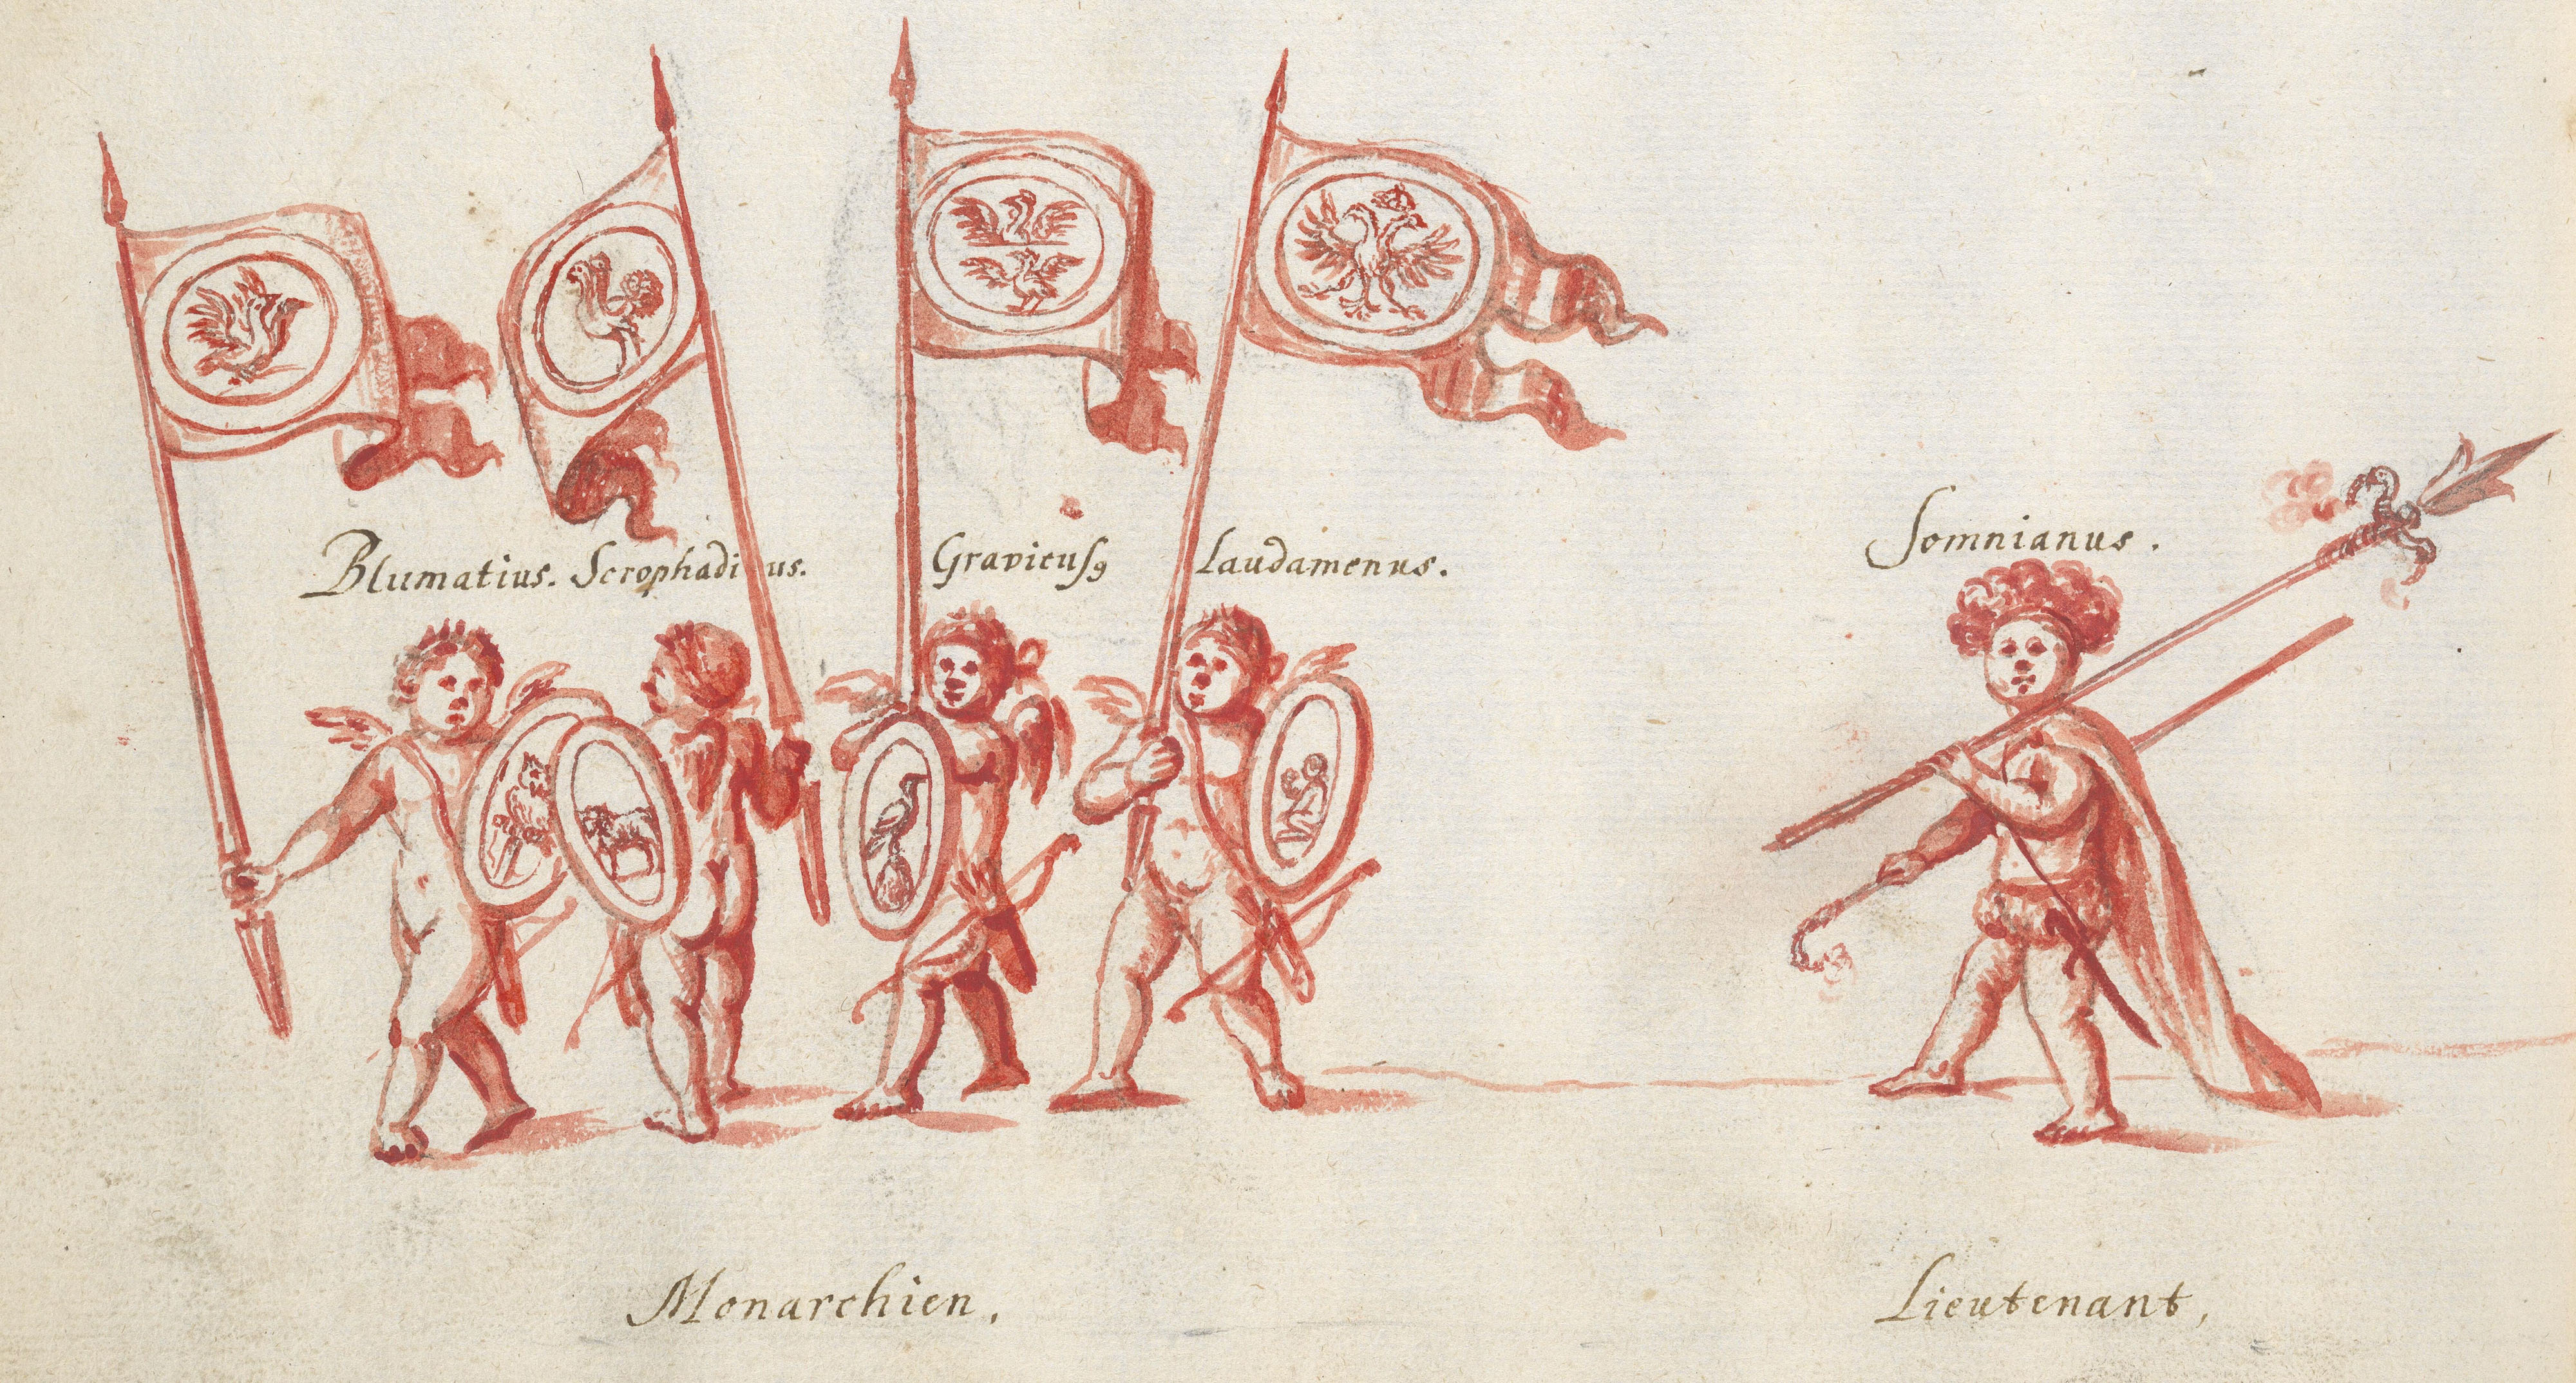 Blumatius. Scrophadicus. Gravitusꝯ Laudamenus. Somnianus.
Monarchien. Lieutenant.